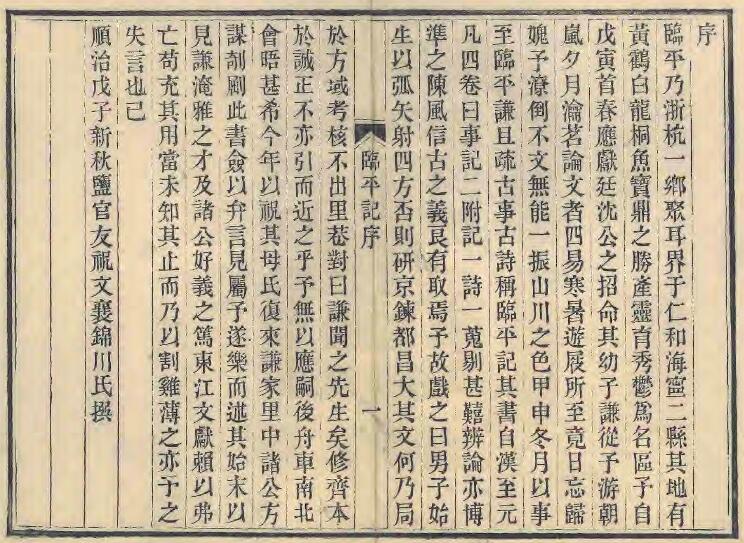 序
臨平乃浙杭一鄉聚耳界于仁和海寧二縣其地有
黃鶴白龍桐魚寶鼎之勝產靈育秀鬱爲名區予自
戊寅首春應獻廷沈公之招命其幼子謙從予游朝
嵐夕月瀹茗論文者四易寒暑遊屐所至竟日忘歸
媿予潦倒不文無能一振山川之色甲申冬月以事
至臨平謙且疏古事古詩稱臨平記其書自漢至元
凡四卷曰事記二附記一詩一蒐剔甚囏辨論亦博
準之陳風信古之義良有取焉予故戲之曰男子始
生以弧矢射四方否則研京鍊都昌大其文何乃局
臨平記序
一
於方域考核不出里巷對曰謙聞之先生矣修齊本
於誠正不亦引而近之乎予無以應嗣後舟車南北
會晤甚希今年以祝其母氏復來謙家里中諸公方
謀剞劂此書僉以弁言見屬予遂樂而述其始末以
見謙淹雅之才及諸公好義之篤東江文獻賴以弗
亡苟充其用當未知其止而乃以割雞薄之亦予之
失言也已
順治戊子新秋鹽官友祝文襄錦川氏撰